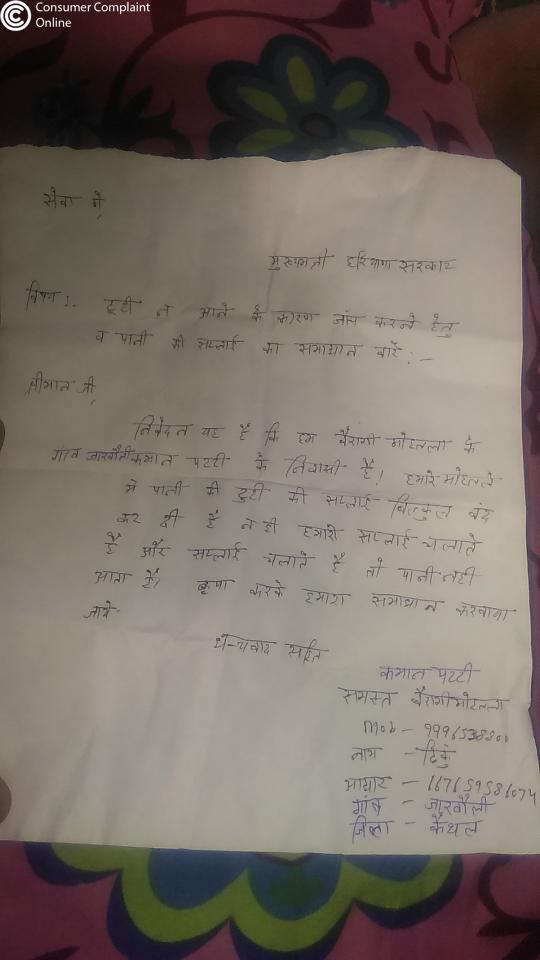 Consumer Complaint
Online
सेवा में,
मुख्यमंत्री हरियाणा सरकार
विषय :- टूटी न आने के कारण जांच करने हेतु
व पानी की सप्लाई का समाधान बारें :-
श्रीमान जी,
निवेदन यह है कि हम बैरागी मोहल्ला के
गांव जाखौली कमान पट्टी के निवासी है। हमारे मोहल्ले
मे पानी की टुटी की सप्लाई बिल्कुल बंद
कर दी है न ही हमारी सप्लाई चलाते
है और सप्लाई चलाते है तो पानी नही
आता है। कृपा करके हमारा समाधान करवाया
जाये
धन्यवाद सहित
कमान पट्टी
समस्त बैरागी मोहल्ला
Mob -
नाम - टिंकु
आधार -
गांव - जाखौली
जिला - कैथल